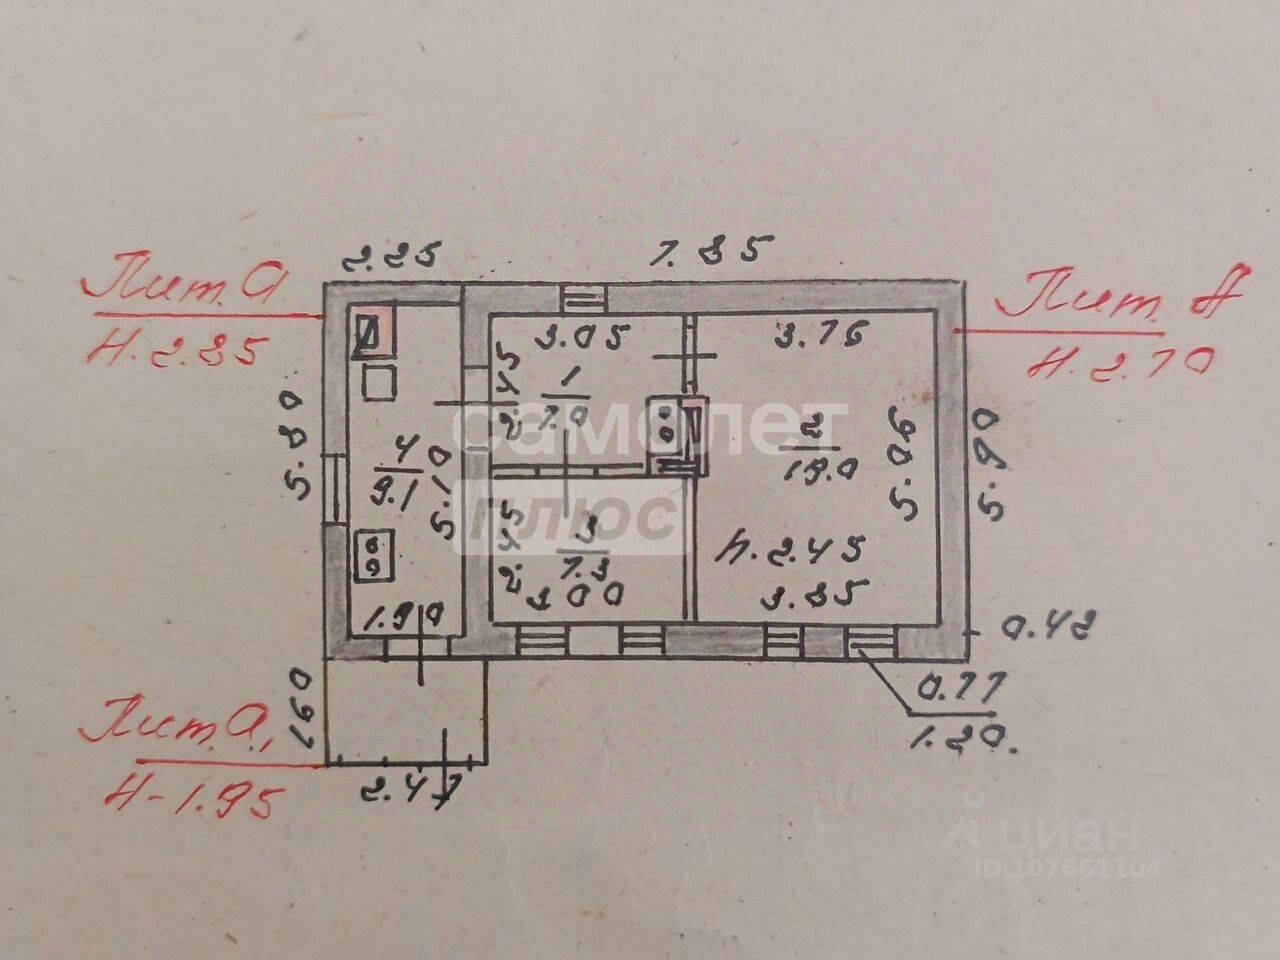 2.25
7.85
Лит. а
Н. 2.35
Лит. А
Н. 2.70
3.05
3.76
2.45
1
7.0
самолет
плюс
2
19.0
5.06
5.90
5.80
4
9.1
5.10
2.45
3
7.3
3.00
Н. 2.45
3.85
1.90
0.42
0.77
1.20.
1.60
Лит. а1
Н-1.95
2.47
циан
ID 107661104